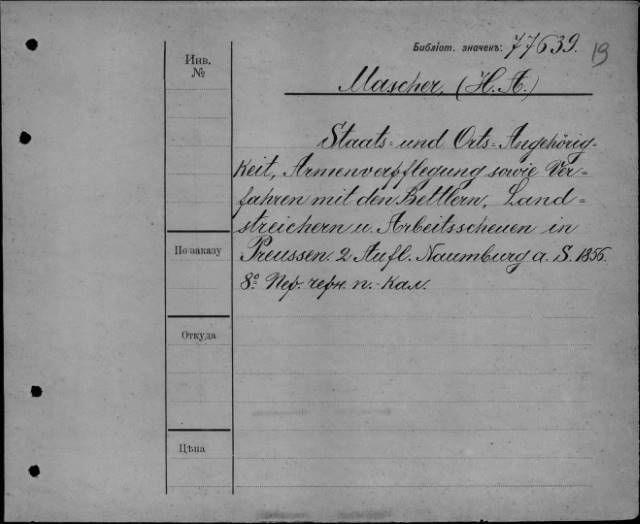 Библіот. значекъ: 77639. 19
Инв.
№
Mascher, (H. A.)
Staats- und Orts-Angehörig-
keit, Armenverpflegung sowie Ver-
fahren mit den Bettlern, Land-
streichern u. Arbeitsscheuen in
По заказу
Preussen. 2 Aufl. Naumburg a. S. 1856.
8° Пер. черн. п.-кал.
Откуда
Цѣна